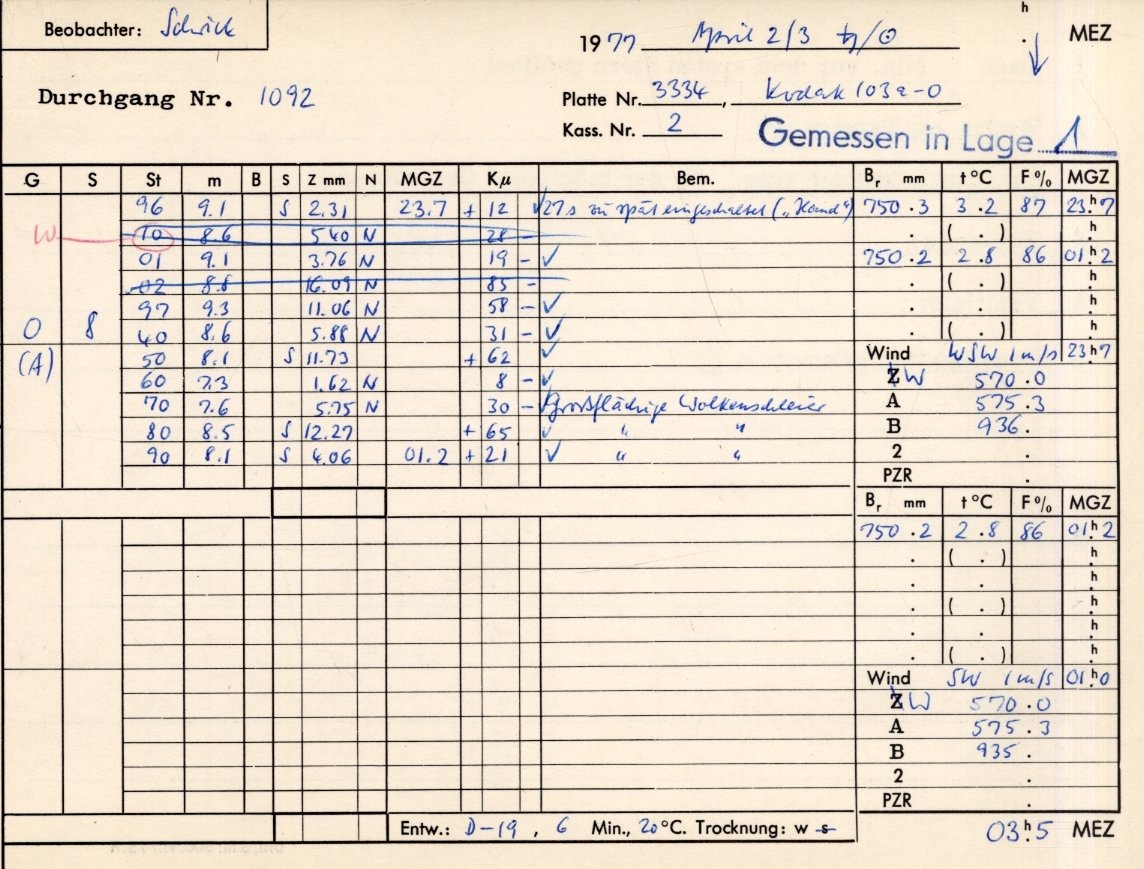 Beobachter: Schrick
h
1977 April 2/3 ♄/☉ . MEZ
Durchgang Nr. 1092
Platte Nr. 3334 , Kodak 103a-O
Kass. Nr. 2
Gemessen in Lage 1
G S St m B S Z mm N MGZ Kμ Bem. Br mm t°C F% MGZ
96 9.1 S 2.31 23.7 + 12 √ 27s zu spät eingeschaltet („Hand“) 750.3 3.2 87 23h.7
W 10 8.6 5.40 N 28 – . ( . ) h
01 9.1 3.76 N 19 – √ 750.2 2.8 86 01h.2
02 8.8 16.09 N 85 – . ( . ) h
97 9.3 11.06 N 58 – √ . . h
O 8 40 8.6 5.88 N 31 – √ . ( . ) h
(A) 50 8.1 S 11.73 + 62 √ Wind WSW 1m/s 23h.7
60 7.3 1.62 N 8 – √ Z W 570.0
70 7.6 5.75 N 30 – √ Großflächige Wolkenschleier A 575.3
80 8.5 S 12.27 + 65 √ " " B 936.
90 8.1 S 4.06 01.2 + 21 √ " " 2 .
PZR .
Br mm t°C F% MGZ
750.2 2.8 86 01h.2
. ( . ) h
. . h
. ( . ) h
. . h
. ( . ) h
Wind SW 1m/s 01h.0
Z W 570.0
A 575.3
B 935.
2 .
PZR .
Entw.: D-19 , 6 Min., 20°C. Trocknung: w s
03h.5 MEZ